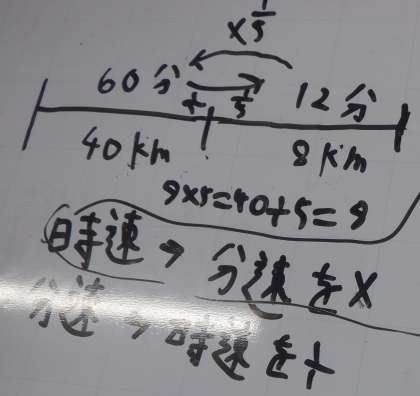 ×1/5
60分 12分
÷ 1/5
40km 8km
8×5=40÷5=8
時速→分速を×
分速→時速を÷